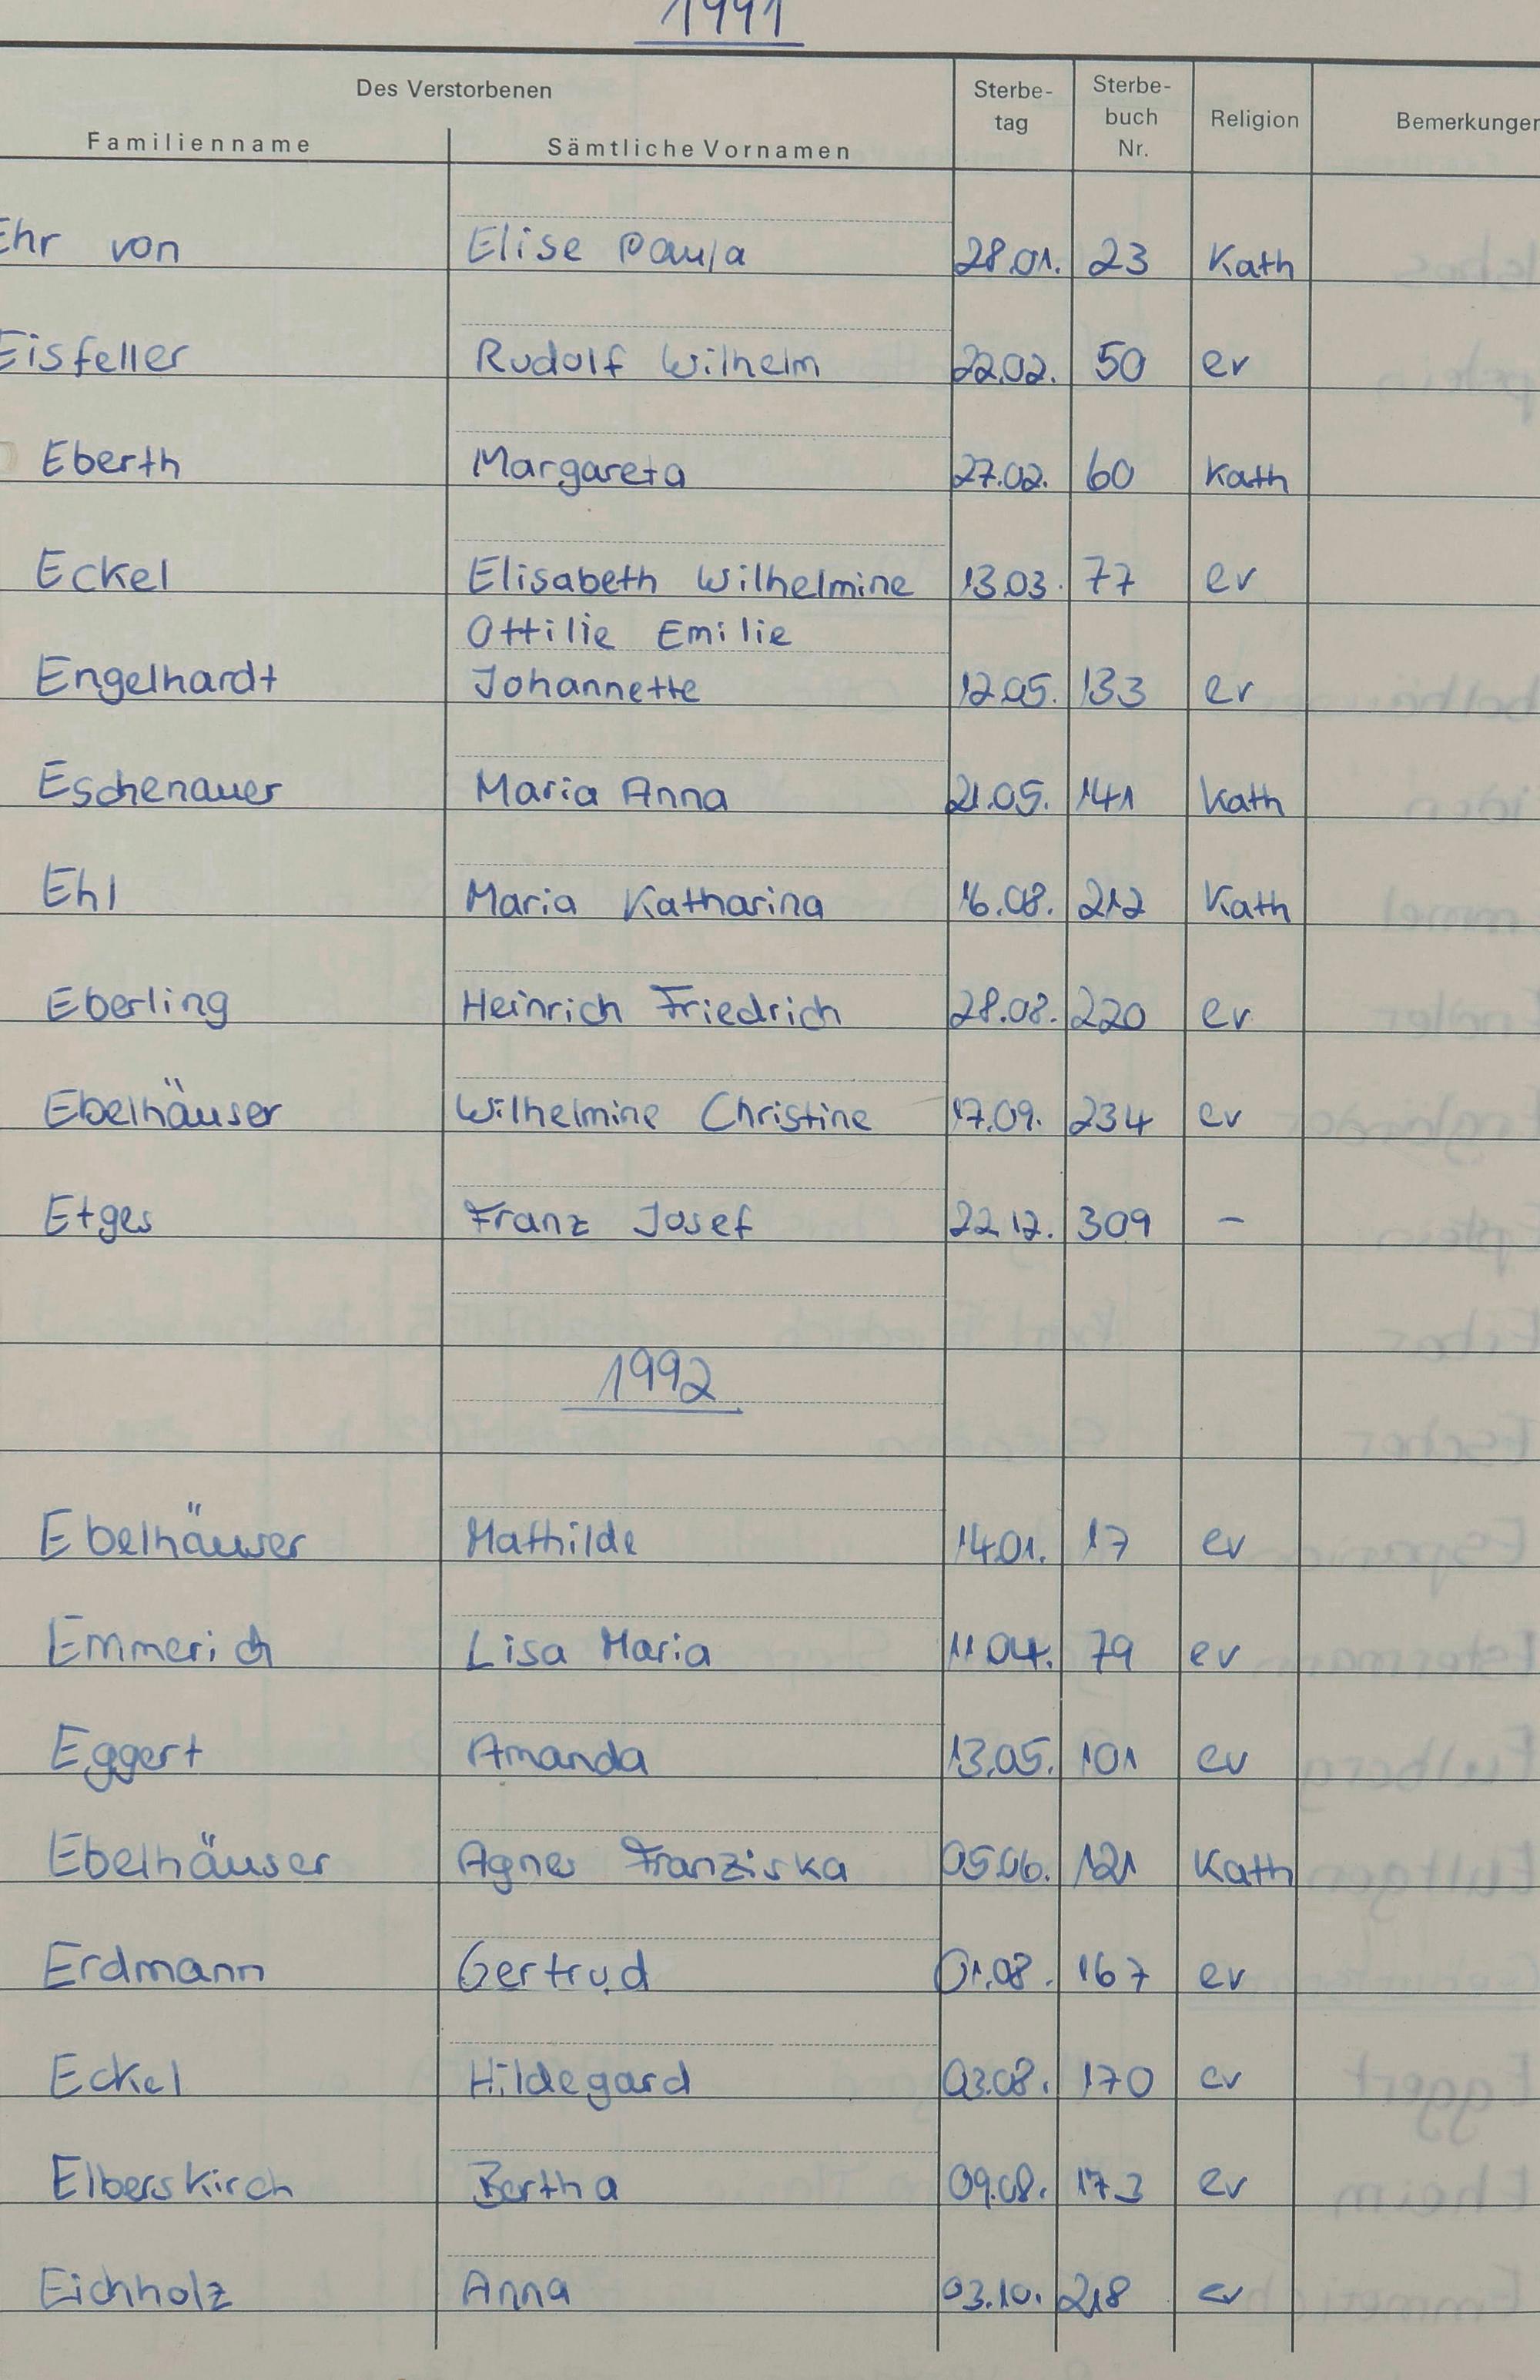 1991
Des Verstorbenen
Familienname Sämtliche Vornamen Sterbe-
tag Sterbe-
buch
Nr. Religion Bemerkungen
Ehr von Elise Paula 28.01. 23 Kath
Eisfeller Rudolf Wilhelm 22.02. 50 ev
Eberth Margareta 27.02. 60 Kath
Eckel Elisabeth Wilhelmine 13.03. 77 ev
Ottilie Emilie
Engelhardt Johannette 12.05. 133 ev
Eschenauer Maria Anna 21.05. 141 Kath
Ehl Maria Katharina 16.08. 212 Kath
Eberling Heinrich Friedrich 28.08. 220 ev
Ebelhäuser Wilhelmine Christine 17.09. 234 ev
Etges Franz Josef 22.12. 309 –
1992
Ebelhäuser Mathilde 14.01. 17 ev
Emmerich Lisa Maria 11.04. 79 ev
Eggert Amanda 13.05. 101 ev
Ebelhäuser Agnes Franziska 05.06. 121 Kath
Erdmann Gertrud 01.08. 167 ev
Eckel Hildegard 03.08. 170 ev
Elberskirch Bertha 09.08. 173 ev
Eichholz Anna 03.10. 218 ev